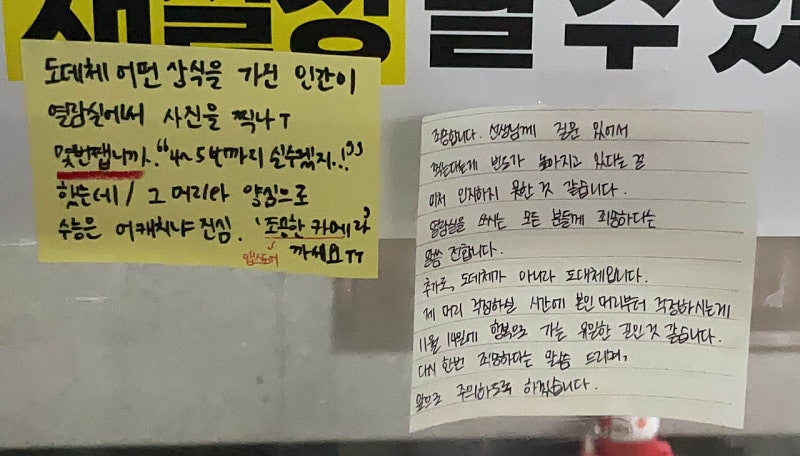 재설정 될 수 있
도데체 어떤 상식을 가진 인간이
열람실에서 사진을 찍나ㅜ
몇번쨉니까. "4~5번까지 실수겠지..!"
했는데/ 그 머리와 양심으로
수능은 어캐치냐 진심. '조용한 카메라'
앱스토어 까세요ㅜㅜ
죄송합니다. 선생님께 질문 있어서
찍는다는게 빈도가 높아지고 있다는 걸
미처 인지하지 못한 것 같습니다.
열람실을 쓰시는 모든 분들께 죄송하다는
말씀 전합니다.
추가로, 도데체가 아니라 도대체입니다.
제 머리 걱정하실 시간에 본인 머리부터 걱정하시는게
11월 14일에 행복으로 가는 유일한 길인 것 같습니다.
다시 한번 죄송하다는 말씀 드리며,
앞으로 주의하도록 하겠습니다.